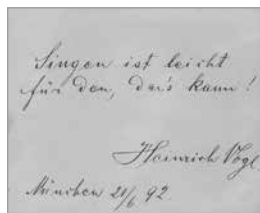 Singen ist leicht
für den, der's kann!
Heinrich Vogl
München 21/6 92.